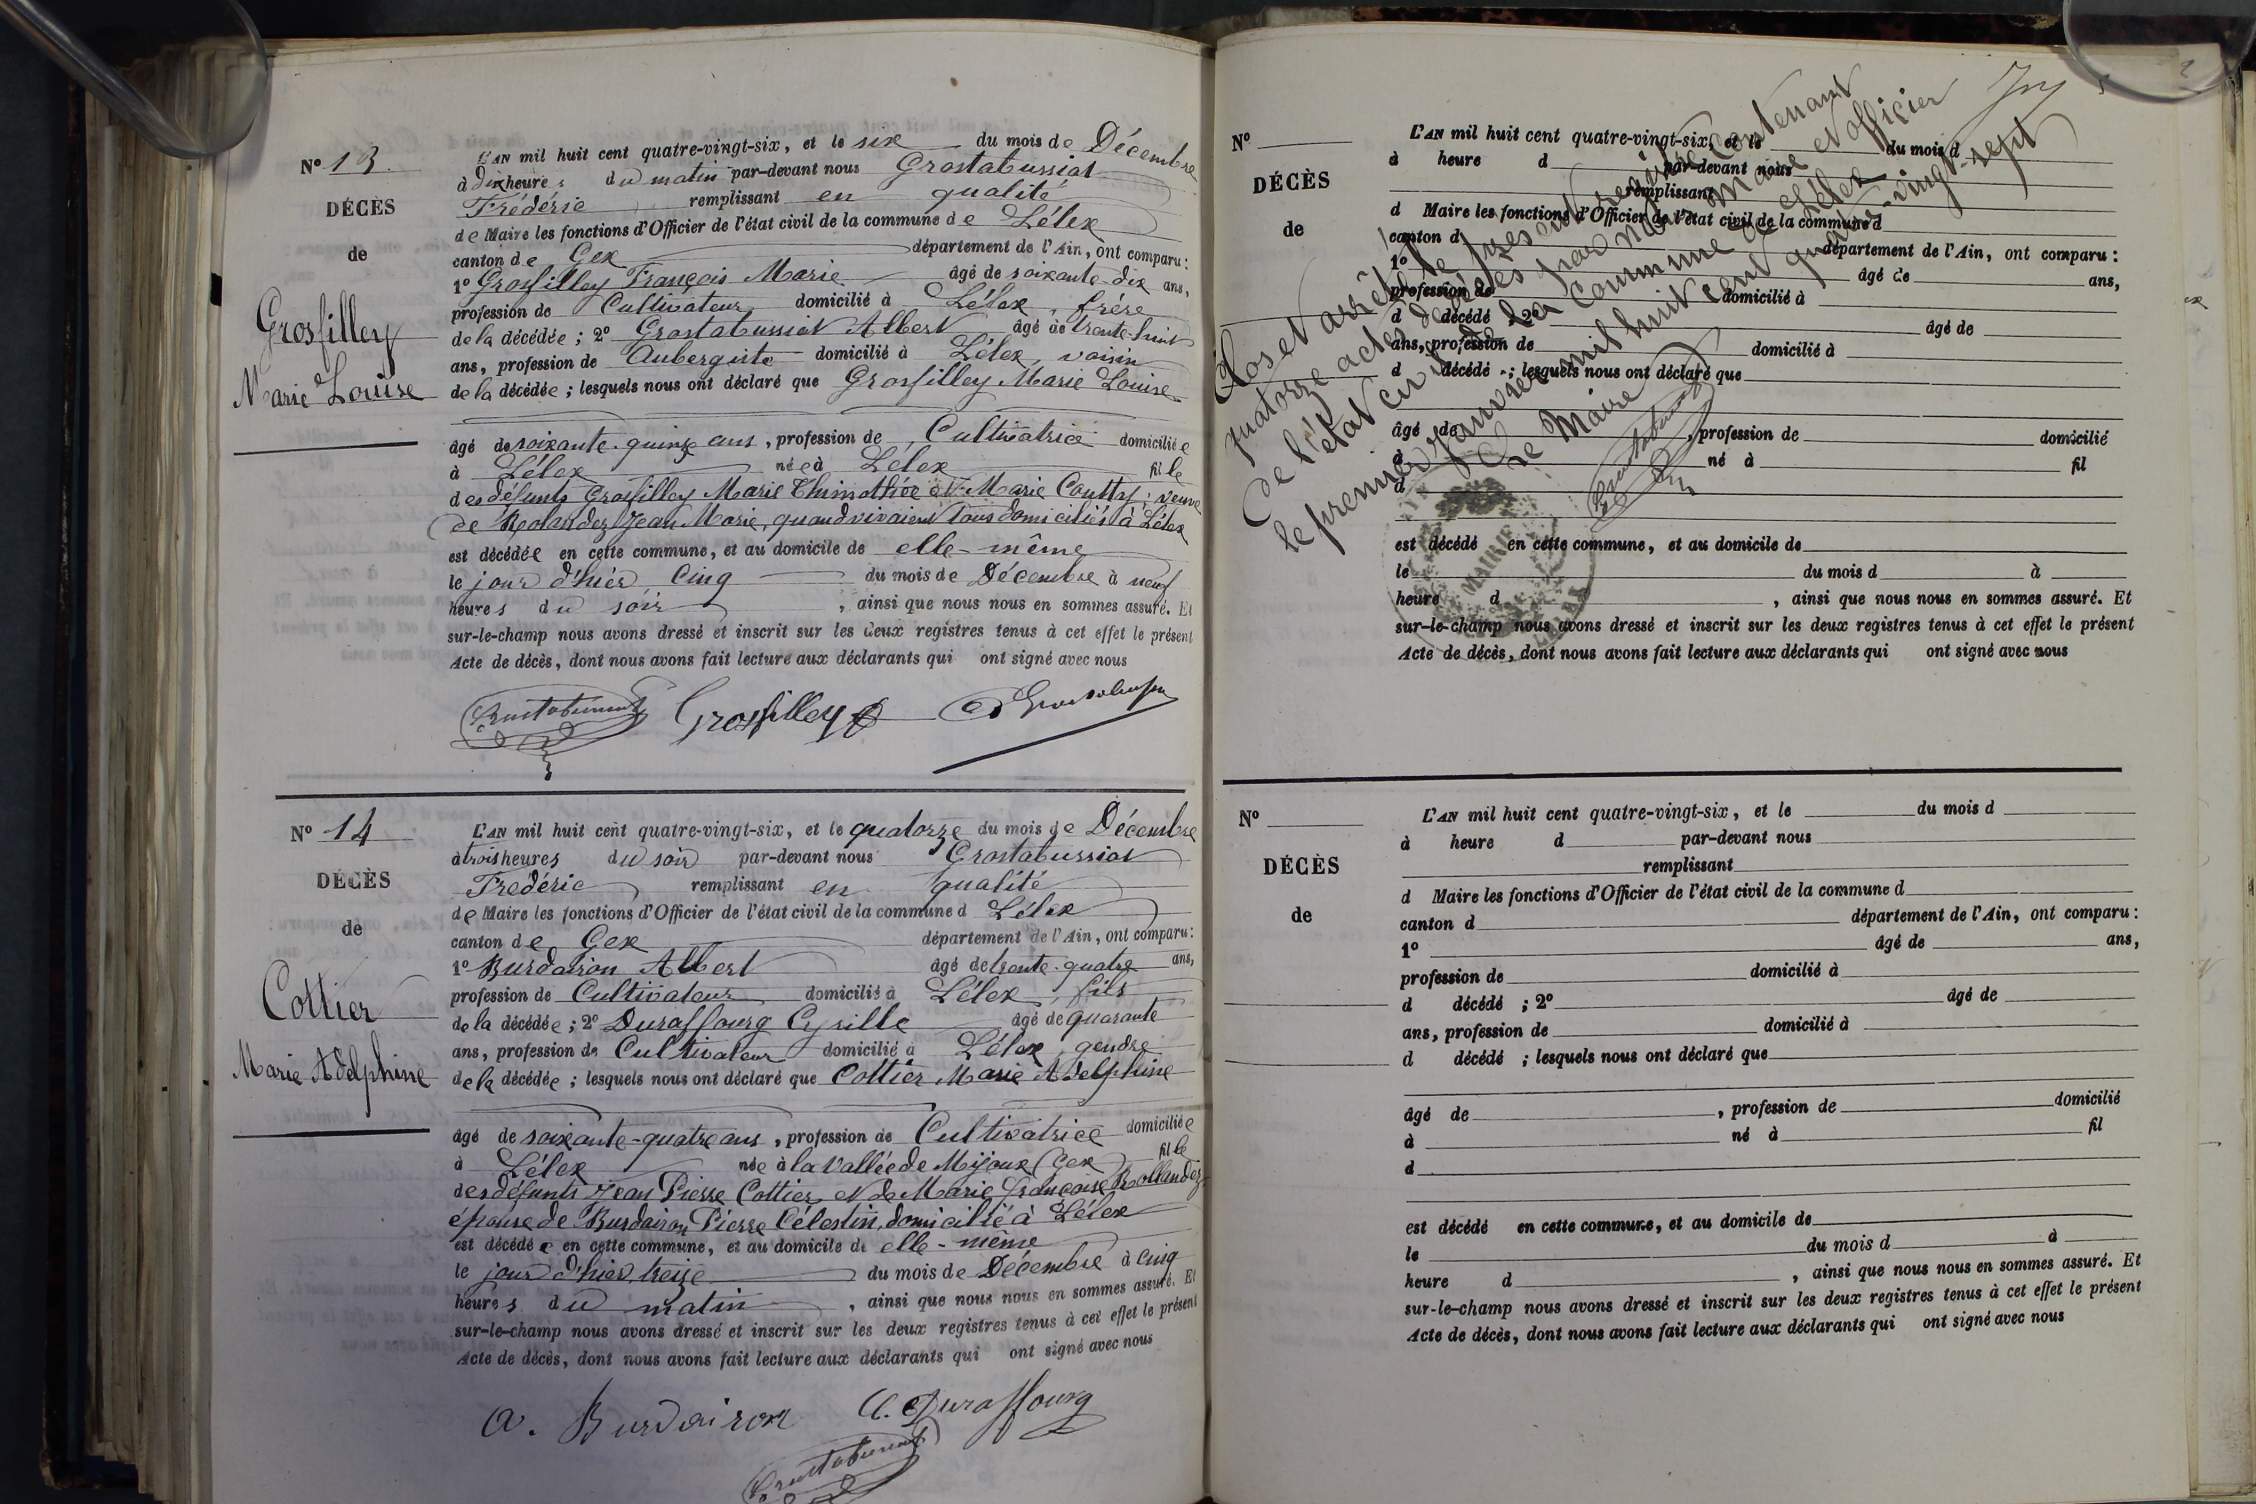 N° 13
DÉCÈS
de
Grosfilley
Marie Louise
L'AN mil huit cent quatre-vingt-six, et le six du mois de Décembre
à dix heures du matin par-devant nous Grostabussiat
Frédéric remplissant en qualité
de Maire les fonctions d'Officier de l'état civil de la commune de Lélex
canton de Gex département de l'Ain, ont comparu :
1° Grosfilley François Marie âgé de soixante-dix ans,
profession de Cultivateur domicilié à Lélex, frère
de la décédée ; 2° Grostabussiat Albert âgé de trente-huit
ans, profession de Aubergiste domicilié à Lélex, voisin
de la décédée ; lesquels nous ont déclaré que Grosfilley Marie Louise
âgé de soixante-quinze ans, profession de Cultivatrice domiciliée
à Lélex née à Lélex fille
des défunts Grosfilley Marie Thimothée et Marie Couttty ; veuve
de Rolandez Jean Marie, quand vivaient tous domiciliés à Lélex
est décédée en cette commune, et au domicile de elle-même
le jour d'hier cinq du mois de Décembre à neuf
heures du soir, ainsi que nous nous en sommes assuré. Et
sur-le-champ nous avons dressé et inscrit sur les deux registres tenus à cet effet le présent
Acte de décès, dont nous avons fait lecture aux déclarants qui ont signé avec nous
Grostabussiat Grosfilley
N° 14
DÉCÈS
de
Cottier
Marie Adelphine
L'AN mil huit cent quatre-vingt-six, et le quatorze du mois de Décembre
à trois heures du soir par-devant nous Grostabussiat
Frédéric remplissant en qualité
de Maire les fonctions d'Officier de l'état civil de la commune d Lélex
canton de Gex département de l'Ain, ont comparu :
1° Burdairon Albert âgé de trente-quatre ans,
profession de Cultivateur domicilié à Lélex, fils
de la décédée ; 2° Duraffourg Cyrille âgé de quarante
ans, profession de Cultivateur domicilié à Lélex, gendre
de la décédée ; lesquels nous ont déclaré que Cottier Marie Adelphine
âgé de soixante-quatre ans, profession de Cultivatrice domiciliée
à Lélex née à la Vallée de Mijoux (Gex) fille
des défunts Jean Pierre Cottier et de Marie Françoise Rollandez
épouse de Burdairon Pierre Célestin, domicilié à Lélex
est décédée en cette commune, et au domicile de elle-même
le jour d'hier, treize du mois de Décembre à cinq
heures du matin, ainsi que nous nous en sommes assuré. Et
sur-le-champ nous avons dressé et inscrit sur les deux registres tenus à cet effet le présent
Acte de décès, dont nous avons fait lecture aux déclarants qui ont signé avec nous
A. Burdairon C. Duraffourg
Grostabussiat
Clos et arrêté le présent registre contenant
quatorze actes de décès par nous Maire et officier
de l'état civil de la Commune de Lélex
le premier Janvier mil huit cent quatre-vingt-sept
Le Maire
Grostabussiat
MAIRIE
N°
DÉCÈS
de
L'AN mil huit cent quatre-vingt-six, et le du mois d
à heure d par-devant nous
remplissant
d Maire les fonctions d'Officier de l'état civil de la commune d
canton d département de l'Ain, ont comparu :
1° âgé de ans,
profession de domicilié à
d décédé ; 2° âgé de
ans, profession de domicilié à
d décédé ; lesquels nous ont déclaré que
âgé de , profession de domicilié
à né à fil
d
est décédé en cette commune, et au domicile de
le du mois d à
heure d , ainsi que nous nous en sommes assuré. Et
sur-le-champ nous avons dressé et inscrit sur les deux registres tenus à cet effet le présent
Acte de décès, dont nous avons fait lecture aux déclarants qui ont signé avec nous
N°
DÉCÈS
de
L'AN mil huit cent quatre-vingt-six, et le du mois d
à heure d par-devant nous
remplissant
d Maire les fonctions d'Officier de l'état civil de la commune d
canton d département de l'Ain, ont comparu :
1° âgé de ans,
profession de domicilié à
d décédé ; 2° âgé de
ans, profession de domicilié à
d décédé ; lesquels nous ont déclaré que
âgé de , profession de domicilié
à né à fil
d
est décédé en cette commune, et au domicile de
le du mois d à
heure d , ainsi que nous nous en sommes assuré. Et
sur-le-champ nous avons dressé et inscrit sur les deux registres tenus à cet effet le présent
Acte de décès, dont nous avons fait lecture aux déclarants qui ont signé avec nous